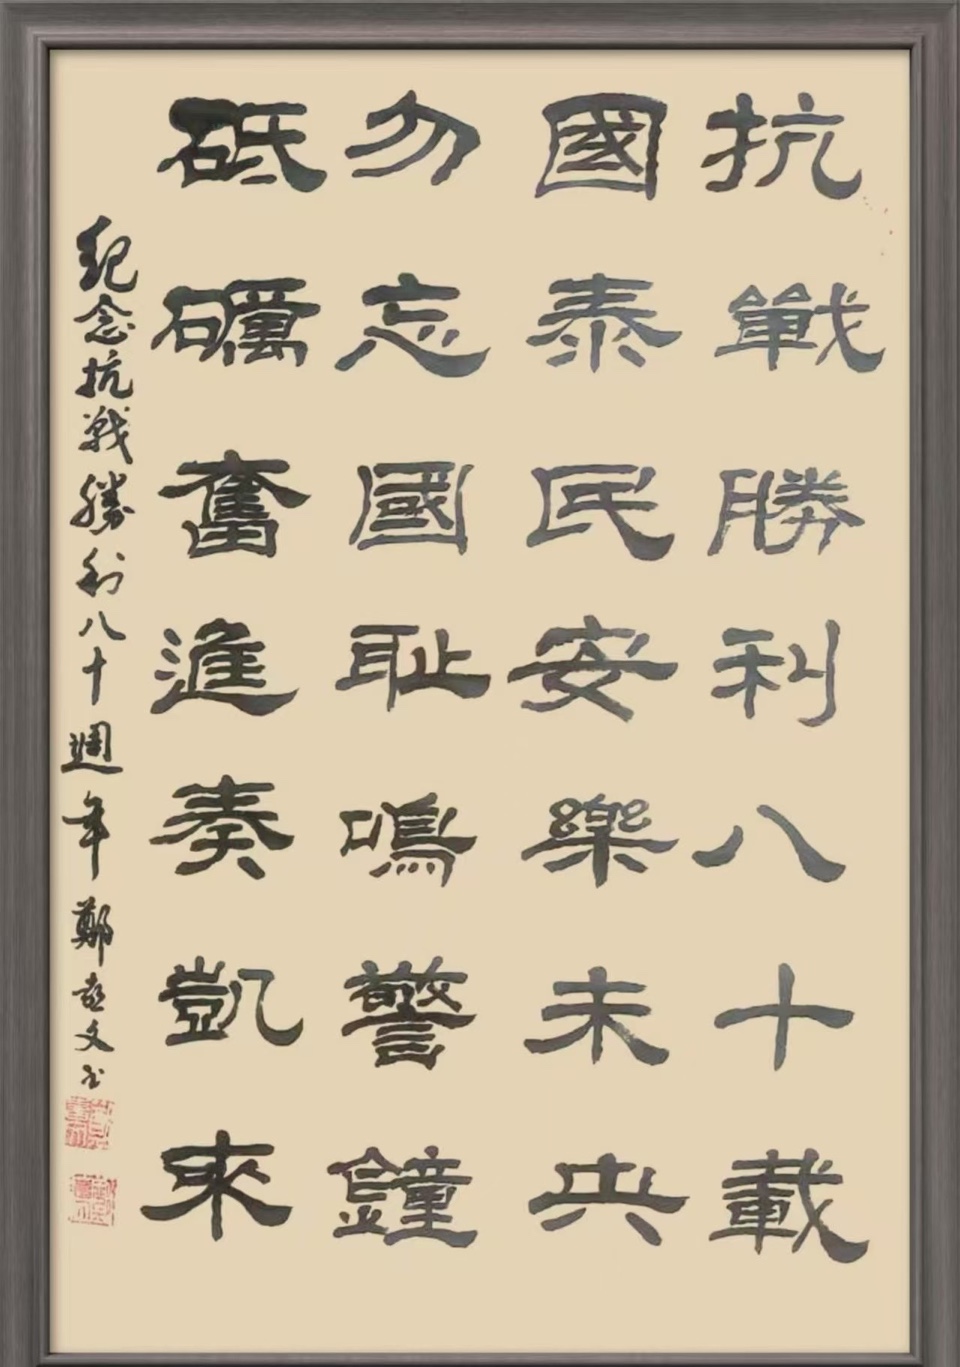 抗戰勝利八十載
國泰民安樂未央
勿忘國耻鳴警鐘
砥礪奮進奏凱來
紀念抗戰勝利八十週年 鄭志文书